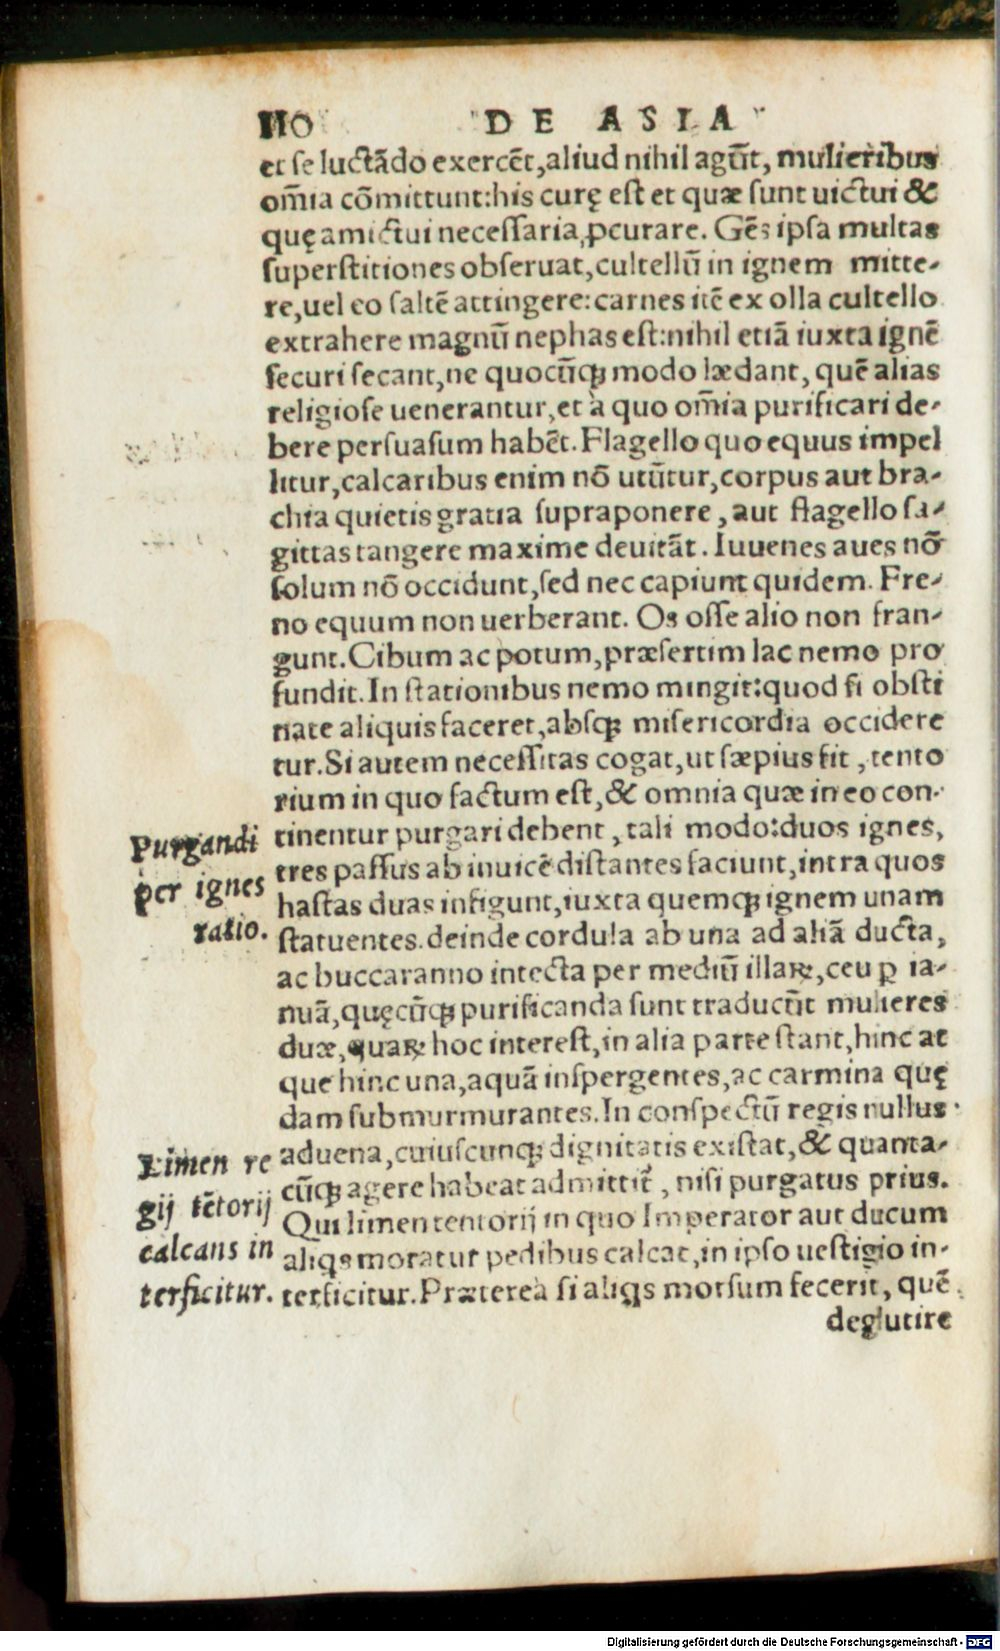 110 DE ASIA
et se luctãdo exercẽt, aliud nihil agũt, mulieribus
om̃ia cõmittunt: his curę est et quæ sunt uictui &
quę amictui necessaria, ꝓcurare. Gẽs ipsa multas
superstitiones obseruat, cultellũ in ignem mitte-
re, uel eo saltẽ attingere: carnes itẽ ex olla cultello
extrahere magnũ nephas est: nihil etiã iuxta ignẽ
securi secant, ne quocũqꝫ modo lædant, quẽ alias
religiose uenerantur, et à quo om̃ia purificari de-
bere persuasum habẽt. Flagello quo equus impel
litur, calcaribus enim nõ utũtur, corpus aut bra-
chia quietis gratia supraponere, aut flagello sa-
gittas tangere maxime deuitãt. Iuuenes aues nõ
solum nõ occidunt, sed nec capiunt quidem. Fre-
no equum non uerberant. Os osse alio non fran-
gunt. Cibum ac potum, præsertim lac nemo pro
fundit. In stationibus nemo mingit: quod si obsti
nate aliquis faceret, absqꝫ misericordia occidere
tur. Si autem necessitas cogat, ut sæpius fit, tento
rium in quo factum est, & omnia quæ in eo con-
Purgandi
per ignes
ratio.
tinentur purgari debent, tali modo: duos ignes,
tres passus ab inuicẽ distantes faciunt, intra quos
hastas duas infigunt, iuxta quemqꝫ ignem unam
statuentes. deinde cordula ab una ad aliã ducta,
ac buccaranno intecta per mediũ illaꝝ, ceu ꝑ ia-
nuã, quęcũqꝫ purificanda sunt traducũt mulieres
duæ, quaꝝ hoc interest, in alia parte stant, hinc at
que hinc una, aquã inspergentes, ac carmina quę
dam submurmurantes. In conspectũ regis nullus
Limen re
gij tẽtorij
calcans in
terficitur.
aduena, cuiuscunqꝫ dignitatis existat, & quanta-
cũqꝫ agere habeat admittit᷑, nisi purgatus prius.
Qui limen tentorij in quo Imperator aut ducum
aliqs moratur pedibus calcat, in ipso uestigio in-
terficitur. Præterea si aliqs morsum fecerit, quẽ
deglutire
Digitalisierung gefördert durch die Deutsche Forschungsgemeinschaft - DFG